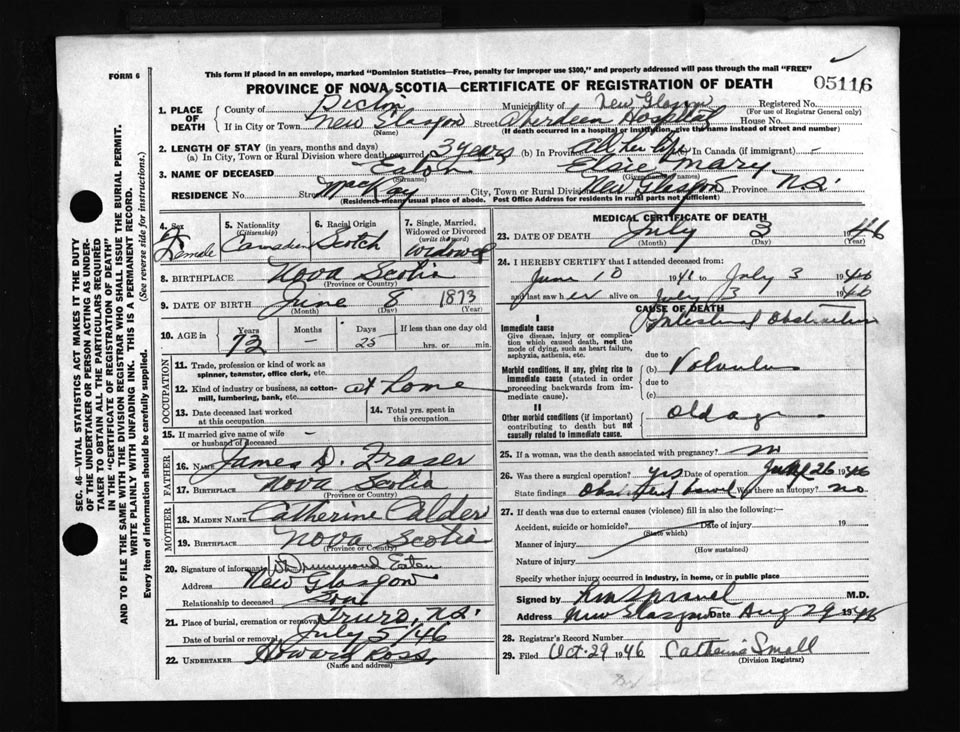 FORM 6
This form if placed in an envelope, marked "Dominion Statistics—Free, penalty for improper use $300," and properly addressed will pass through the mail "FREE"
PROVINCE OF NOVA SCOTIA—CERTIFICATE OF REGISTRATION OF DEATH
05116
SEC. 46—VITAL STATISTICS ACT MAKES IT THE DUTY
OF THE UNDERTAKER OR PERSON ACTING AS UNDER-
TAKER TO OBTAIN ALL THE PARTICULARS REQUIRED
IN THE "CERTIFICATE OF REGISTRATION OF DEATH"
AND TO FILE THE SAME WITH THE DIVISION REGISTRAR WHO SHALL ISSUE THE BURIAL PERMIT.
WRITE PLAINLY WITH UNFADING INK. THIS IS A PERMANENT RECORD.
Every item of information should be carefully supplied. (See reverse side for instructions.)
1. PLACE OF DEATH
County of Pictou Municipality of New Glasgow Registered No.
(For use of Registrar General only)
If in City or Town New Glasgow Street Aberdeen Hospital House No.
(Name) (If death occurred in a hospital or institution, give the name instead of street and number)
2. LENGTH OF STAY (in years, months and days)
(a) In City, Town or Rural Division where death occurred 3 years (b) In Province all her life (c) In Canada (if immigrant) -
3. NAME OF DECEASED Eaton Elsie Mary
(Surname) (Given or names)
RESIDENCE No. Street MacKay City, Town or Rural Division New Glasgow Province N.S.
(Residence means usual place of abode. Post Office Address for residents in rural parts not sufficient)
4. Sex Female
5. Nationality (Citizenship) Canadian
6. Racial Origin Scotch
7. Single, Married, Widowed or Divorced (write the word) Widowed
8. BIRTHPLACE Nova Scotia
(Province or Country)
9. DATE OF BIRTH June 8 1873
(Month) (Day) (Year)
10. AGE in Years 73 Months - Days 25 If less than one day old hrs. or min.
OCCUPATION
11. Trade, profession or kind of work as spinner, teamster, office clerk, etc.
12. Kind of industry or business, as cotton-mill, lumbering, bank, etc. at home
13. Date deceased last worked at this occupation
14. Total yrs. spent in this occupation
15. If married give name of wife or husband of deceased -
FATHER
16. NAME James D. Fraser
17. BIRTHPLACE Nova Scotia
(Province or Country)
MOTHER
18. MAIDEN NAME Catherine Calder
19. BIRTHPLACE Nova Scotia
(Province or Country)
20. Signature of informant Drummond Eaton
Address New Glasgow
Relationship to deceased Son
21. Place of burial, cremation or removal Truro, N.S.
Date of burial or removal July 5/46
22. UNDERTAKER Howard Ross
(Name and address)
MEDICAL CERTIFICATE OF DEATH
23. DATE OF DEATH July 3 1946
(Month) (Day) (Year)
24. I HEREBY CERTIFY that I attended deceased from:
June 10 1941 to July 3 1946
and last saw her alive on July 3 1946
CAUSE OF DEATH
I
Immediate cause Intestinal Obstruction
Give disease, injury or complication which caused death, not the mode of dying, such as heart failure, asphyxia, asthenia, etc.
due to
Morbid conditions, if any, giving rise to immediate cause (stated in order proceeding backwards from immediate cause). (b) Volvulus
due to
(c)
II
Other morbid conditions (if important) contributing to death but not causally related to immediate cause. Old age
25. If a woman, was the death associated with pregnancy? no
26. Was there a surgical operation? yes Date of operation 26 1946
State findings bowel Was there an autopsy? no
27. If death was due to external causes (violence) fill in also the following:—
Accident, suicide or homicide? Date of injury 19
(State which)
Manner of injury
(How sustained)
Nature of injury
Specify whether injury occurred in industry, in home, or in public place
Signed by M.D.
Address New Glasgow Date Aug 29 1946
28. Registrar's Record Number
29. Filed Oct. 29 1946 Catherine Small
(Division Registrar)